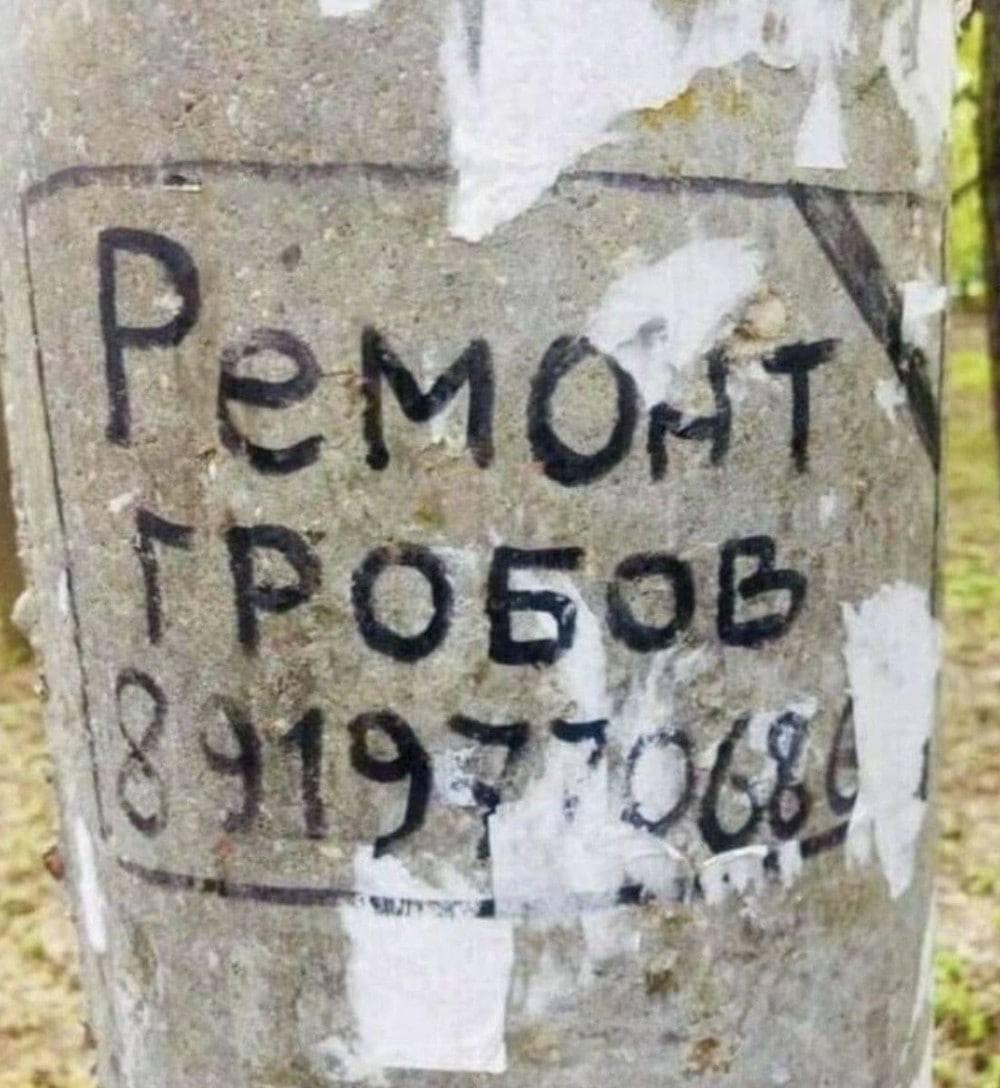 Ремонт
ГРОБОВ
8919770686